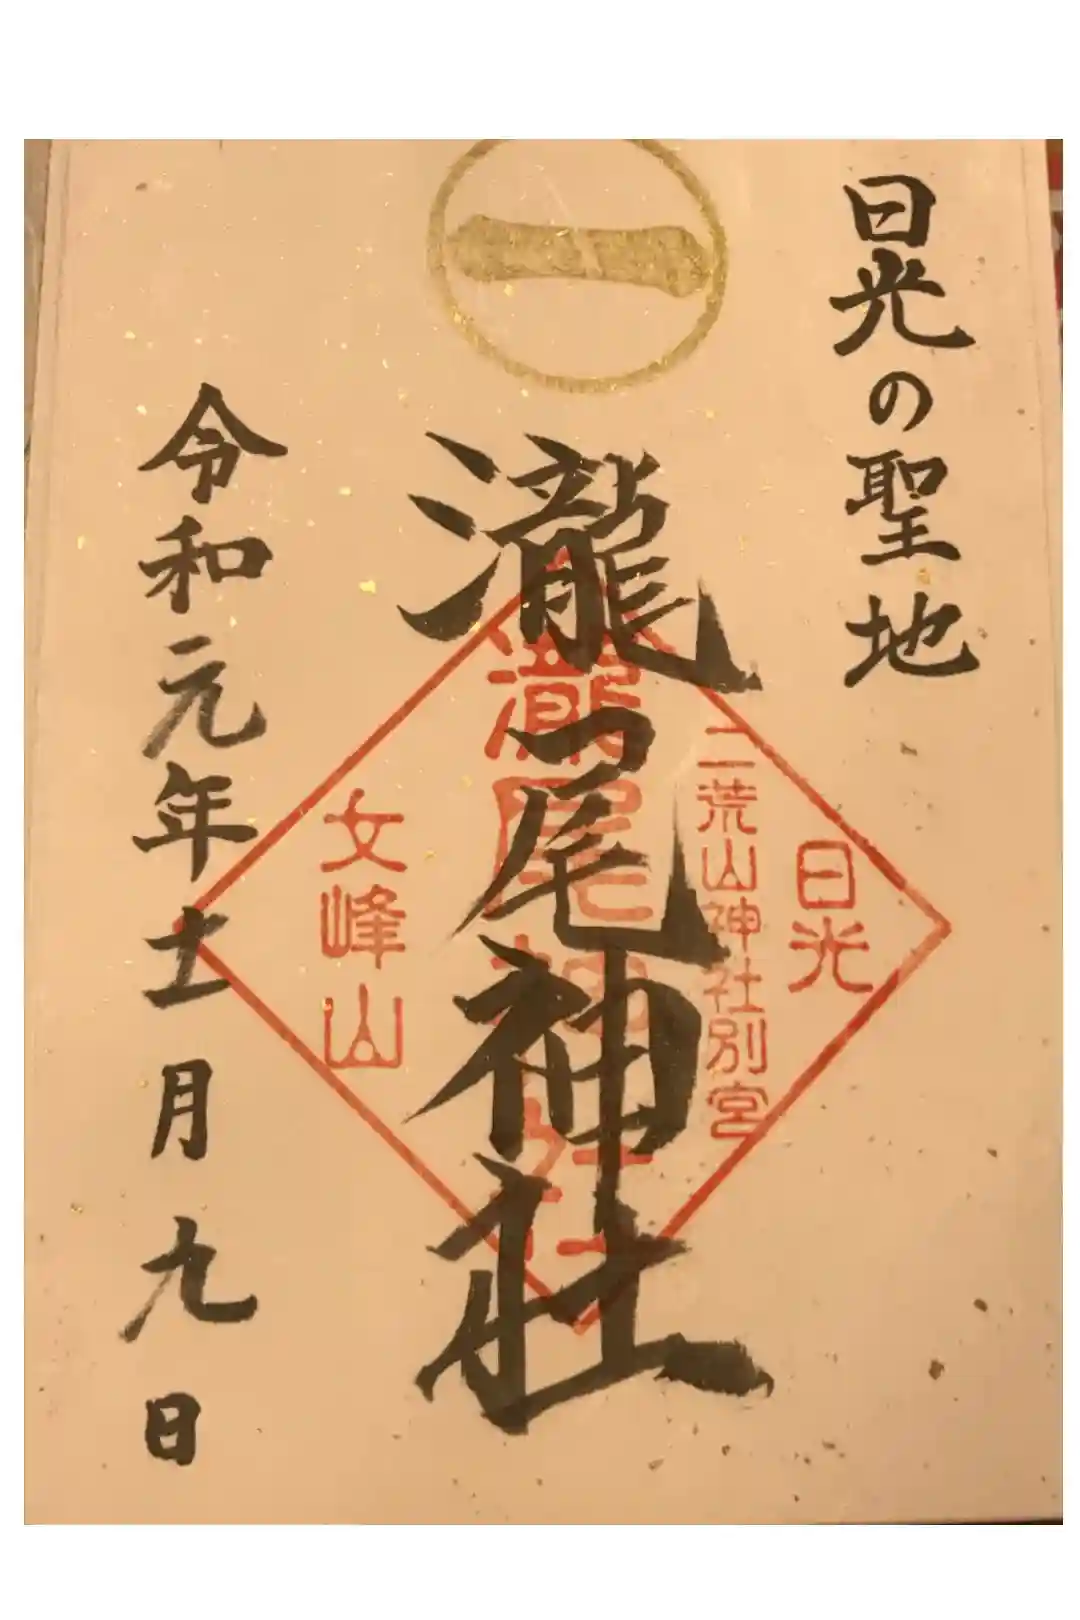 一
日光の聖地
瀧尾神社
令和元年十一月九日
日光
二荒山神社別宮
瀧尾神社
女峰山